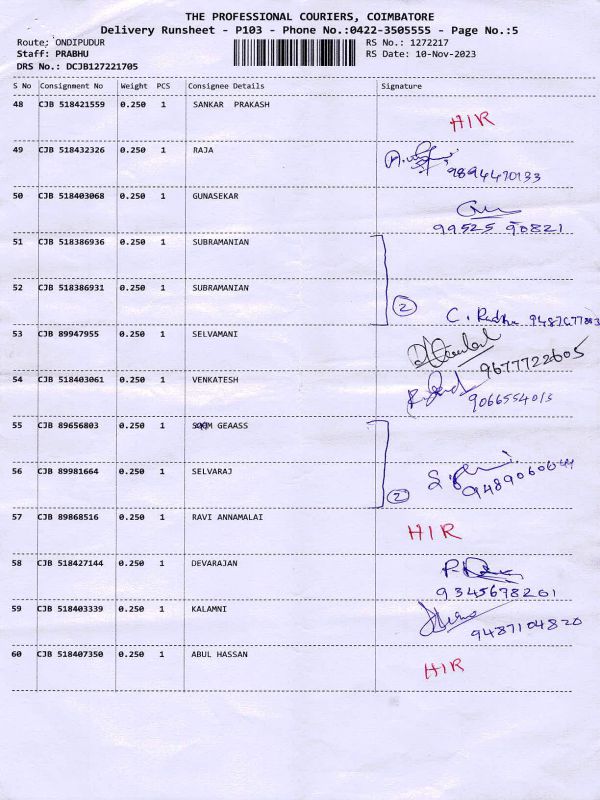 THE PROFESSIONAL COURIERS, COIMBATORE
Delivery Runsheet - P103 - Phone No.:0422-3505555 - Page No.:5
Route: ONDIPUDUR RS No.: 1272217
Staff: PRABHU RS Date: 10-Nov-2023
DRS No.: DCJB127221705
S No Consignment No Weight PCS Consignee Details Signature
48 CJB 518421559 0.250 1 SANKAR PRAKASH
HIR
49 CJB 518432326 0.250 1 RAJA
9894470133
50 CJB 518403068 0.250 1 GUNASEKAR
99525 90821
51 CJB 518386936 0.250 1 SUBRAMANIAN
52 CJB 518386931 0.250 1 SUBRAMANIAN
2 C. Radha
53 CJB 89947955 0.250 1 SELVAMANI
9677722605
54 CJB 518403061 0.250 1 VENKATESH
9066554013
55 CJB 89656803 0.250 1 GEAASS
56 CJB 89981664 0.250 1 SELVARAJ
2
57 CJB 89868516 0.250 1 RAVI ANNAMALAI
HIR
58 CJB 518427144 0.250 1 DEVARAJAN
9345678201
59 CJB 518403339 0.250 1 KALAMNI
9487104820
60 CJB 518407350 0.250 1 ABUL HASSAN
HIR